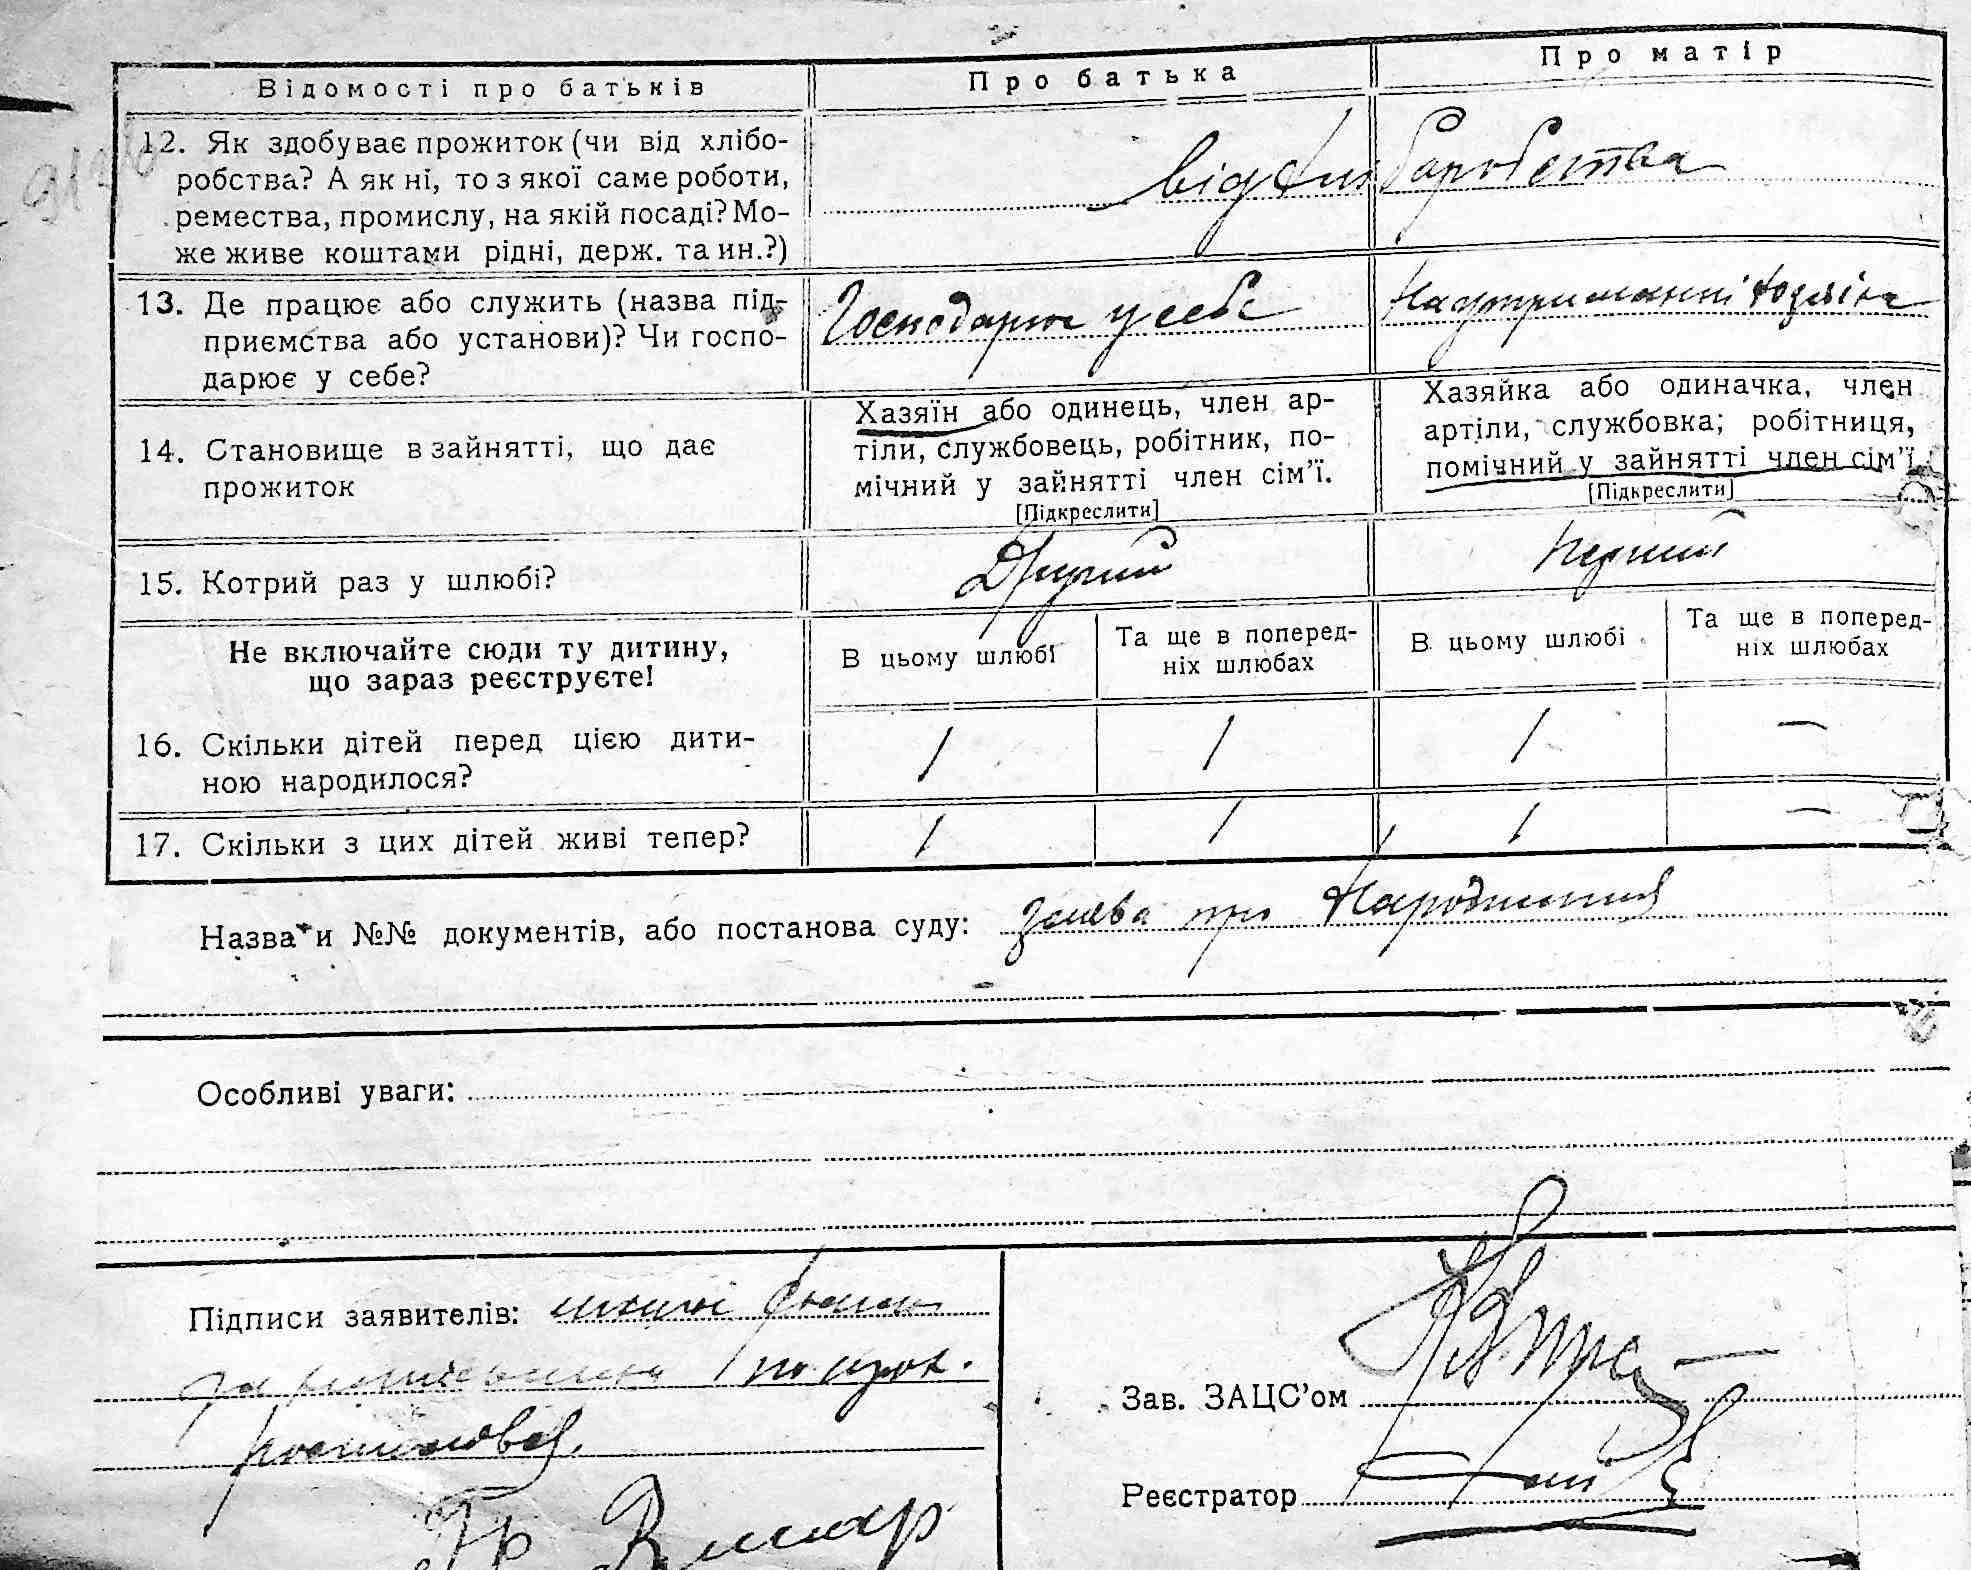 Відомості про батьків
Про батька
Про матір
12. Як здобуває прожиток (чи від хлібо-
робства? А як ні, то з якої саме роботи,
ремества, промислу, на якій посаді? Мо-
же живе коштами рідні, держ. та ин.?)
від хліборобства
13. Де працює або служить (назва під-
приємства або установи)? Чи госпо-
дарює у себе?
Господарює у себе
На утриманні хазяіна
14. Становище в зайнятті, що дає
прожиток
Хазяїн або одинець, член ар-
тіли, службовець, робітник, по-
мічний у зайнятті член сім'ї.
[Підкреслити]
Хазяйка або одиначка, член
артіли, службовка; робітниця,
помічний у зайнятті член сім'ї.
[Підкреслити]
15. Котрий раз у шлюбі?
Другий
Перший
Не включайте сюди ту дитину,
що зараз реєструєте!
В цьому шлюбі
Та ще в поперед-
ніх шлюбах
В цьому шлюбі
Та ще в поперед-
ніх шлюбах
16. Скільки дітей перед цією дити-
ною народилося?
1 1 1 —
17. Скільки з цих дітей живі тепер?
1 1 1 —
Назва и №№ документів, або постанова суду: заява про народження
Особливі уваги:
Підписи заявителів:
Зав. ЗАЦС'ом
Реєстратор